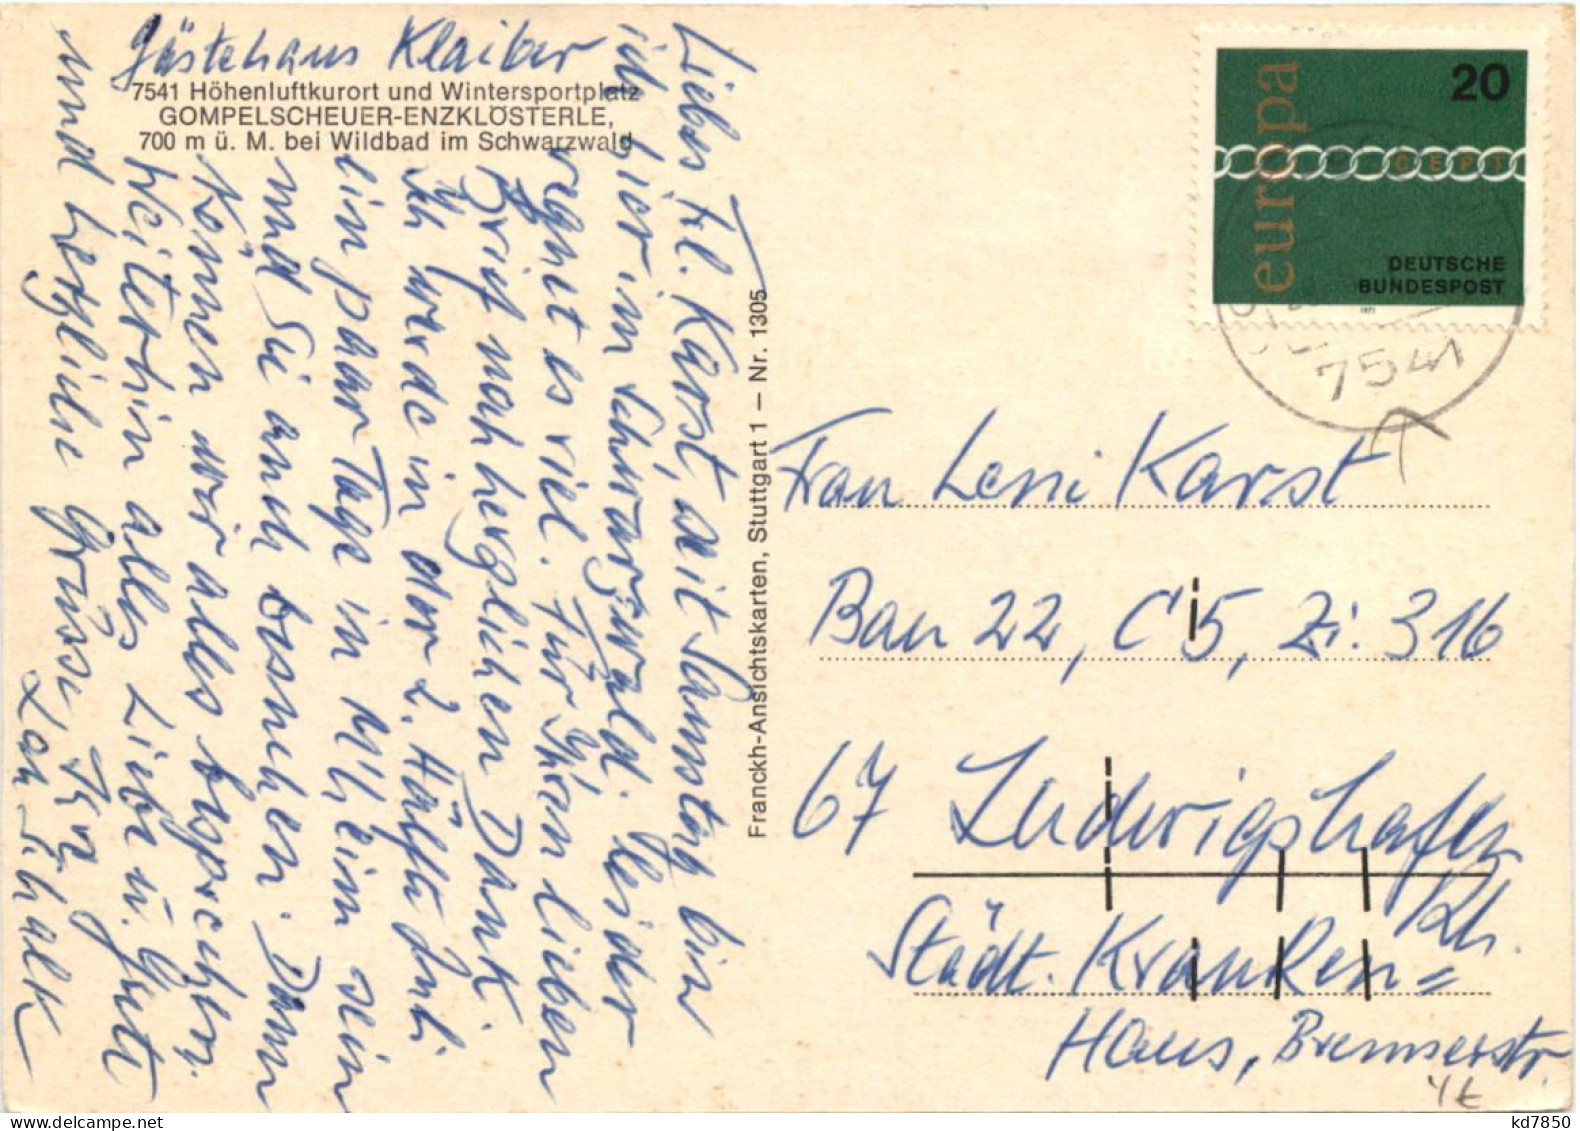 Gästehaus Klaiber
7541 Höhenluftkurort und Wintersportplatz
GOMPELSCHEUER-ENZKLÖSTERLE,
700 m ü. M. bei Wildbad im Schwarzwald
Liebes Frl. Karst, seit Samstag bin
ich hier im Schwarzwald. Leider
regnet es viel. Für Ihren lieben
Brief noch herzlichen Dank.
Ich werde in der 2. Hälfte Juli
ein paar Tage in M'heim sein
und Sie auch besuchen. Dann
können wir alles besprechen.
Weiterhin alles Liebe u. Gute
und herzliche Grüsse Ihre
Franckh-Ansichtskarten, Stuttgart 1 – Nr. 1305
europa
20
CEPT
DEUTSCHE
BUNDESPOST
1971
7541
Frau Leni Karst
Bau 22, C 5, Zi. 316
67 Ludwigshafen
Rh.
Städt. Kranken=
Haus, Bremserstr.
kd7850